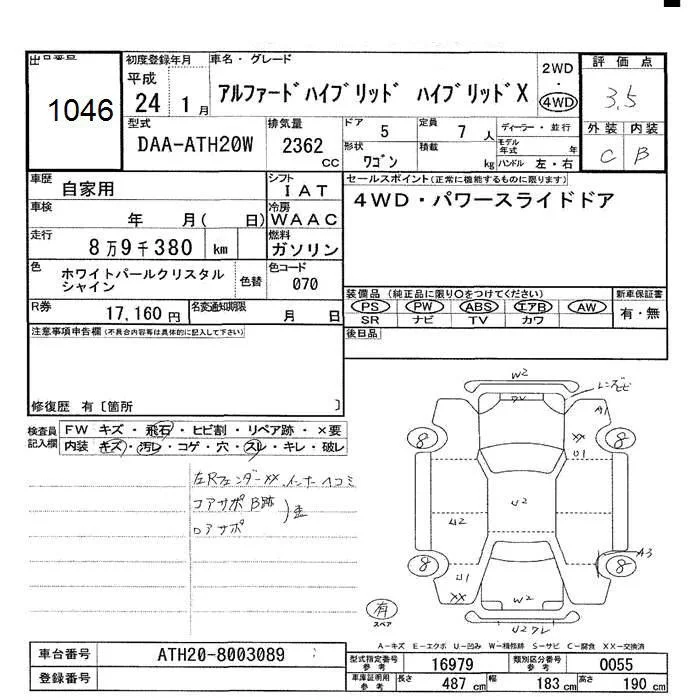 出品番号 初度登録年月 車名・グレード 評価点
1046
平成
24 1月
アルファードハイブリッド ハイブリッドX
2WD
・
4WD
3.5
型式 排気量 ドア 定員 ディーラー・並行 外装 内装
DAA-ATH20W 2362 CC 5 7人 モデル年式 年
C B
形状 積載
ワゴン kg ハンドル 左・右
車歴 シフト セールスポイント(正常に機能するものに限ります)
自家用 IAT 4WD・パワースライドドア
車検 冷房
年 月( 日) WAAC
走行 燃料
8万9千380 km ガソリン
色 色替 色コード
ホワイトパールクリスタル
シャイン
070
装備品(純正品に限り○をつけてください) 新車保証書
R券 名変通知期限 PS PW ABS エアB AW 有・無
17,160円 月 日 SR ナビ TV カワ
注意事項申告欄(不具合内容等は具体的に記入して下さい) 後日品
修復歴 有〔箇所 〕
検査員
記入欄
FW キズ・飛石・ヒビ割・リペア跡・×要
内装 キズ・汚レ・コゲ・穴・スレ・キレ・破レ
左Rフェンダーxx.インナーヘコミ
コアサポ B跡
ロアサポ
W2
レンズヒビ
A1
8 8
XX
U1
U2
U2
A3
8 8
U1
XX
W2
U2ワレ
有
スペア
A-キズ E-エクボ U-凹み W-補修跡 S-サビ C-腐食 XX-交換済
車台番号 ATH20-8003089
登録番号
型式指定番号
参考
16979
類別区分番号
参考
0055
車庫証明用
参考
長さ 487 cm 幅 183 cm 高さ 190 cm